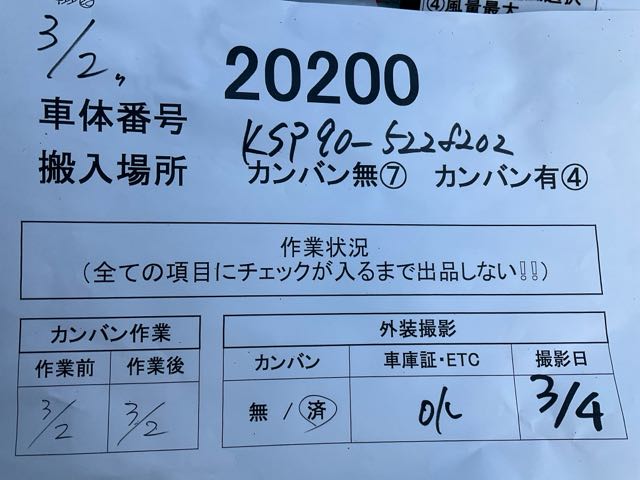 ④風量最大
3/2
20200
車体番号 KSP90-5228202
搬入場所 カンバン無⑦ カンバン有④
作業状況
(全ての項目にチェックが入るまで出品しない!!)
カンバン作業 外装撮影
作業前 作業後 カンバン 車庫証・ETC 撮影日
3/2 3/2 無 / 済 OK 3/4